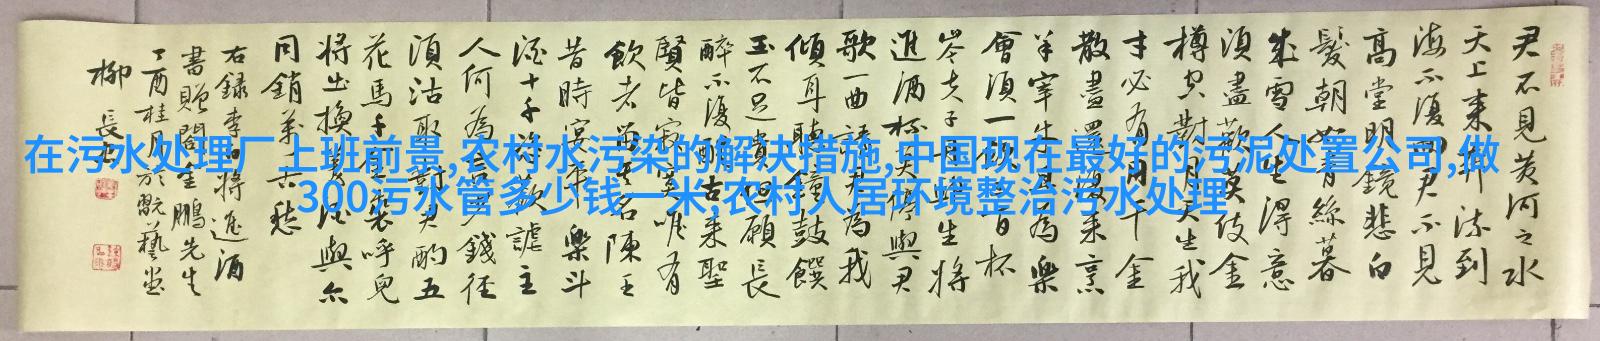 在污水处理厂上班前景,农村水污染的解决措施,中国现在最好的污泥处置公司,做
300污水管多少钱一米,农村人居环境整治污水处理
君不見黃河之水
天上来奔流到
海不復回君不見
高堂明鏡悲白
髮朝如青絲暮
成雪人生得意
須盡歡莫使金
樽空對月天生我
才必有用千金
散盡還復来烹
羊宰牛且為樂
會須一飲三百杯
岑夫子丹丘生將
進酒杯莫停與君
歌一曲請君為我
傾耳聽鐘鼓饌
玉不足貴但願長
醉不復醒古来聖
賢皆寂寞唯有
飲者留其名陳王
昔時宴平樂斗
酒十千恣歡謔主
人何為言少錢徑
須沽取對君酌五
花馬千金裘呼兒
將出換美酒與尔
同銷萬古愁
右録李白將進酒
書贈閻金鵬先生
丁酉桂月於翫藝堂
柳長忠